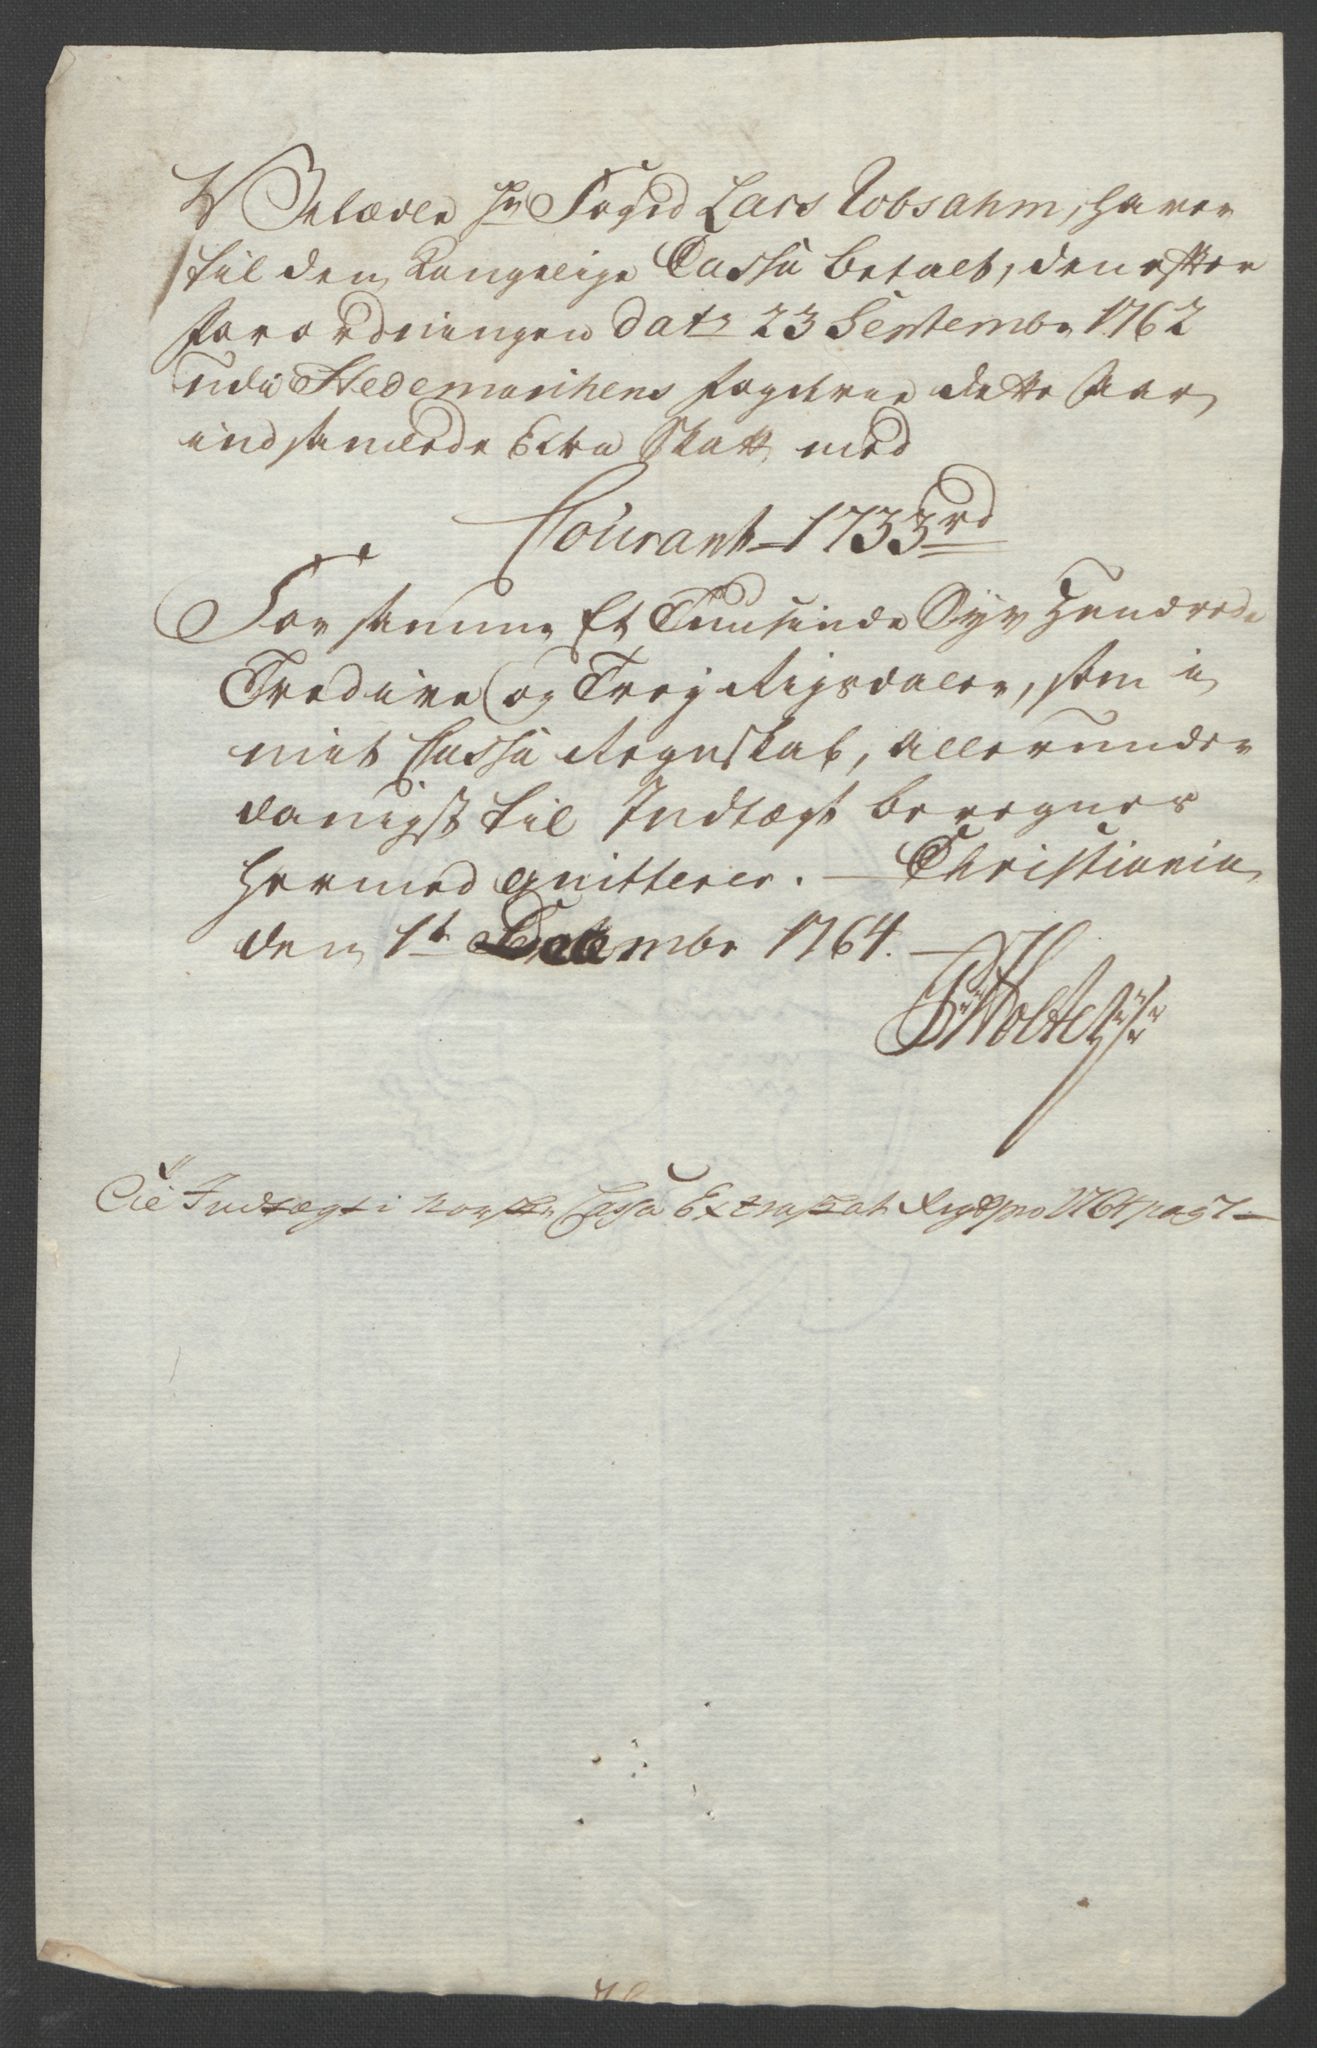 Velædle Hr Foged Lars Robsahm, haver
til den Kongelige Cassa betalt, den efter
forordningen dat: 23 Septembr 1762
udi Hedemarkens fogderie dette Aar
indsamlede Extra Skatt, med
Courant 1733 rd
For samme Et Tuusinde Syv Hundrede
Tredive og Trej Rigsdaler, som i
mit Cassa Regnskab, allerunder
danigst til Indtægt beregnes
hermed qvitterer. Christiania
den 1t Decembr 1764.
Holte
Til Indtægt i norske Cassa Extraskat Regsk pro 1764 pag 7